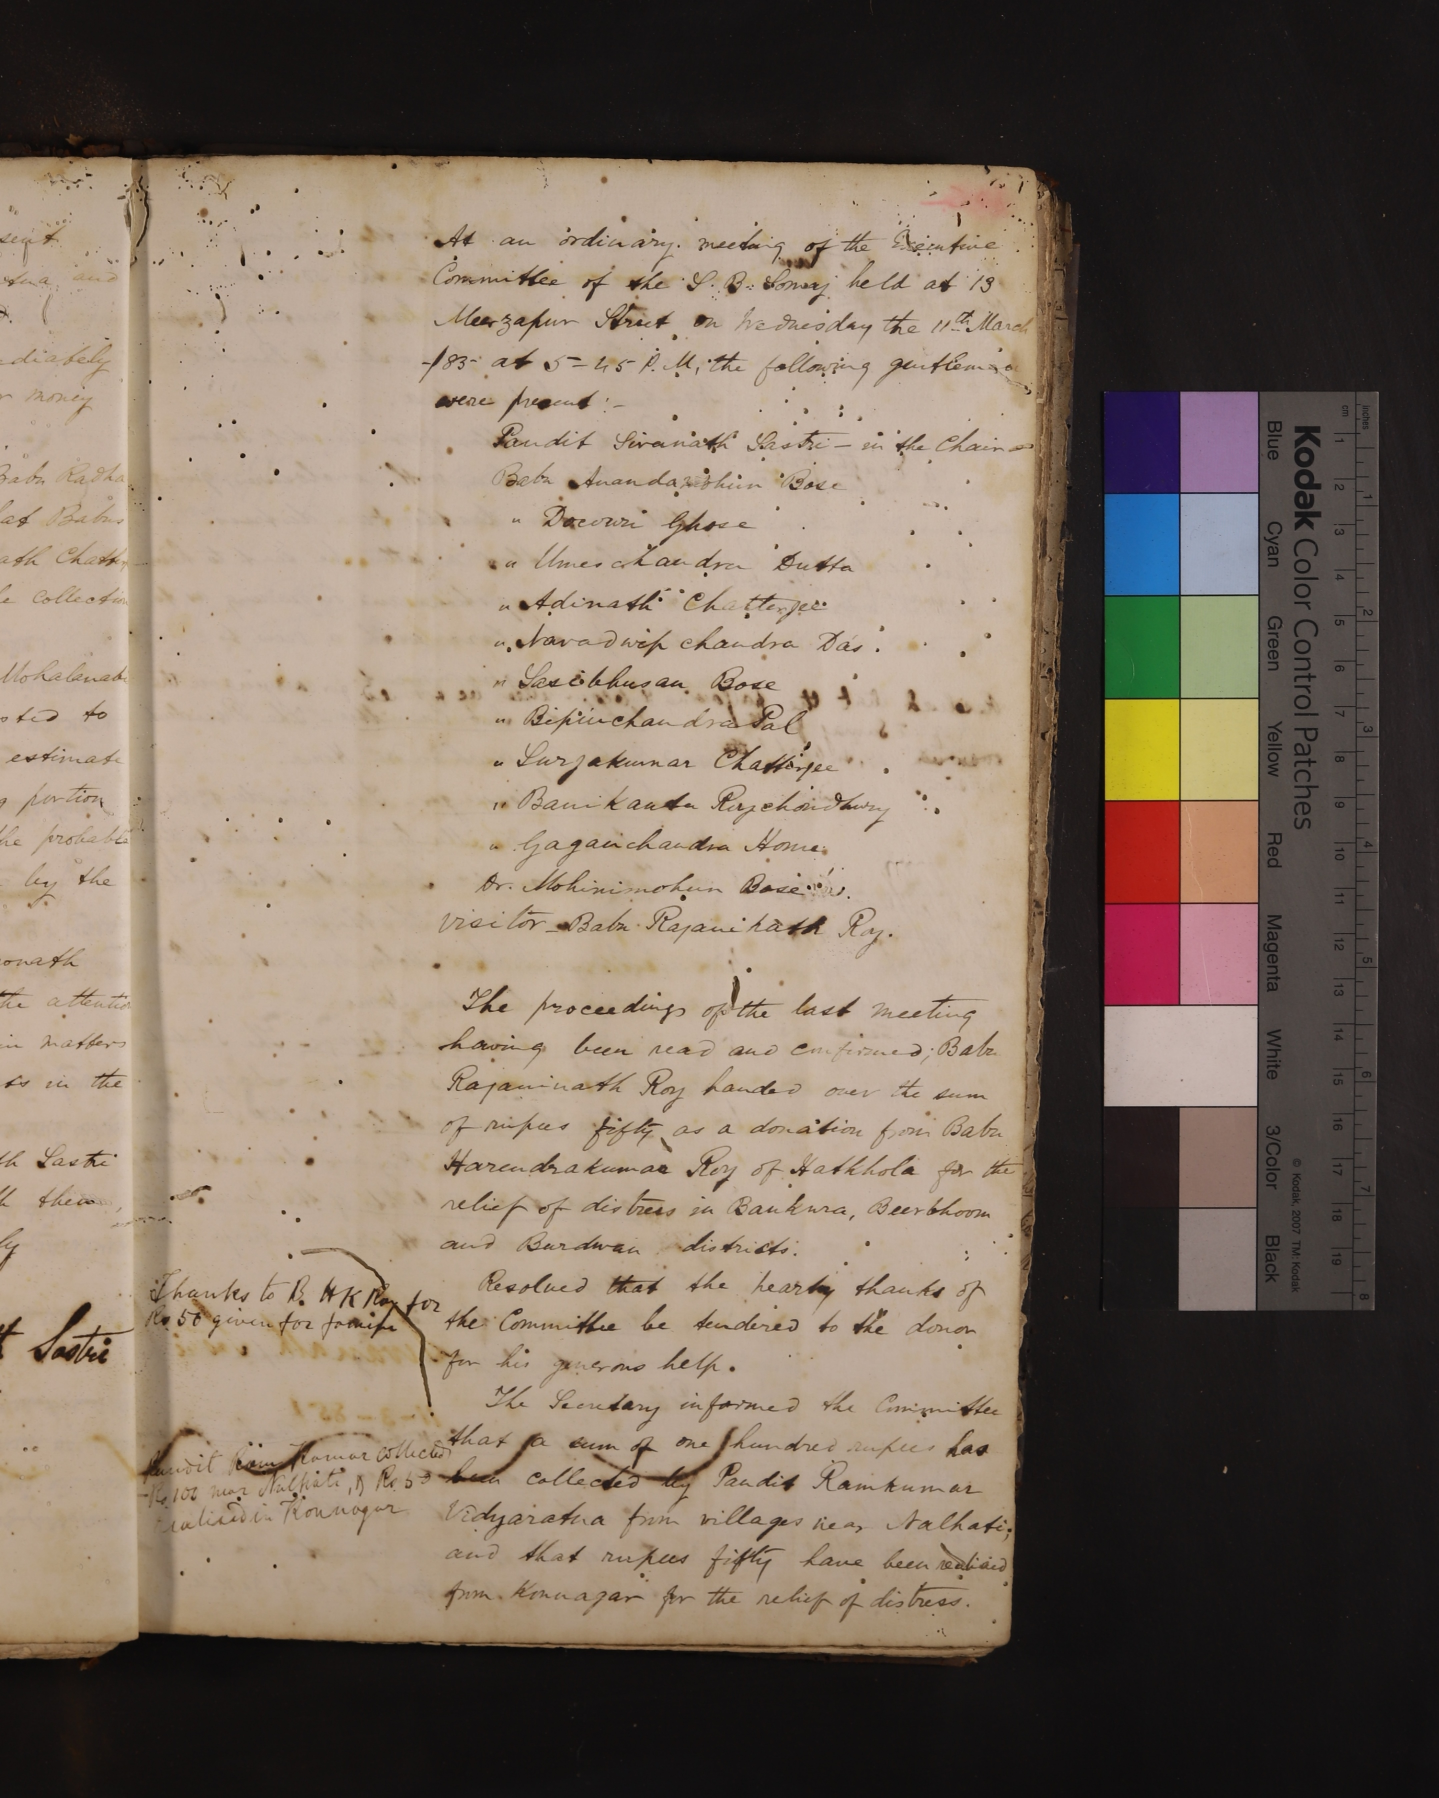 seqt
and
ediately
money
Babu Radha
at Babus
ath Chatter
collection
Mohalanabi
sted to
estimate
portion
the probable
by the
onath
the attention
in matters
ss in the
th Sastri
them,
ly
Sastri
At an ordinary meeting of the Executive
Committee of the S. B. Somaj held at 13
Meerzapur Street on Wednesday the 11th March
/85 at 5-45 P.M, the following gentlemen
were present :-
Pandit Sivanath Sastri - in the Chair
Babu Anandamohun Bose
" Docowri Ghose
" Umeschandra Dutta
" Adinath Chatterjee
" Navadwip chandra Das.
" Sasibhusan Bose
" Bipinchandra Pal
" Surjakumar Chatterjee
" Banikanta Roychoudhury
" Gaganchandra Home
Dr. Mohinimohun Bose
Visitor - Babu Rajaninath Roy.
The proceedings of the last meeting
having been read and confirmed; Babu
Rajaninath Roy handed over the sum
of rupees fifty as a donation from Babu
Harendrakumar Roy of Hathhola for the
relief of distress in Bankura, Beerbhoom
and Burdwan districts.
Thanks to B. H K Roy for
Rs 50 given for famine
Resolved that the hearty thanks of
the Committee be tendered to the donor
for his generous help.
Pundit Ram Kumar collected
Rs 100 near Nalhati, & Rs 50
realised in Konnagar
The Secretary informed the Committee
that a sum of one hundred rupees has
been collected by Pandit Ramkumar
Vidyaratna from villages near Nalhati;
and that rupees fifty have been realised
from Konnagar for the relief of distress.
Kodak Color Control Patches
Blue Cyan Green Yellow Red Magenta White 3/Color Black
© Kodak, 2007 TM: Kodak
cm 1 2 3 4 5 6 7 8 9 10 11 12 13 14 15 16 17 18 19
inches 1 2 3 4 5 6 7 8